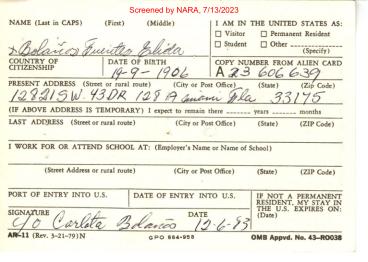 Screened by NARA, 7/13/2023
NAME (Last in CAPS) (First) (Middle)
I AM IN THE UNITED STATES AS:
Visitor Permanent Resident
Student Other
(Specify)
Bolaños Fuentes Elida
COUNTRY OF CITIZENSHIP
COPY NUMBER FROM ALIEN CARD
9-1906
A 23 606 639
PRESENT ADDRESS (Street or rural route) (City or Post Office) (State) (Zip Code)
12821 SW 43 DR 128 A Miami Fla 33175
(IF ABOVE ADDRESS IS TEMPORARY) I expect to remain there years months
LAST ADDRESS (Street or rural route) (City or Post Office) (State) (ZIP Code)
I WORK FOR OR ATTEND SCHOOL AT: (Employer's Name or Name of School)
(Street Address or rural route) (City or Post Office) (State) (ZIP Code)
PORT OF ENTRY INTO U.S. DATE OF ENTRY INTO U.S.
IF NOT A PERMANENT RESIDENT, MY STAY IN THE U.S. EXPIRES ON: (Date)
SIGNATURE DATE
c/o Carlota Bolaños 12-6-83
AR-11 (Rev. 3-21-79)N GPO 864-958 OMB Appvd. No. 43-RO038